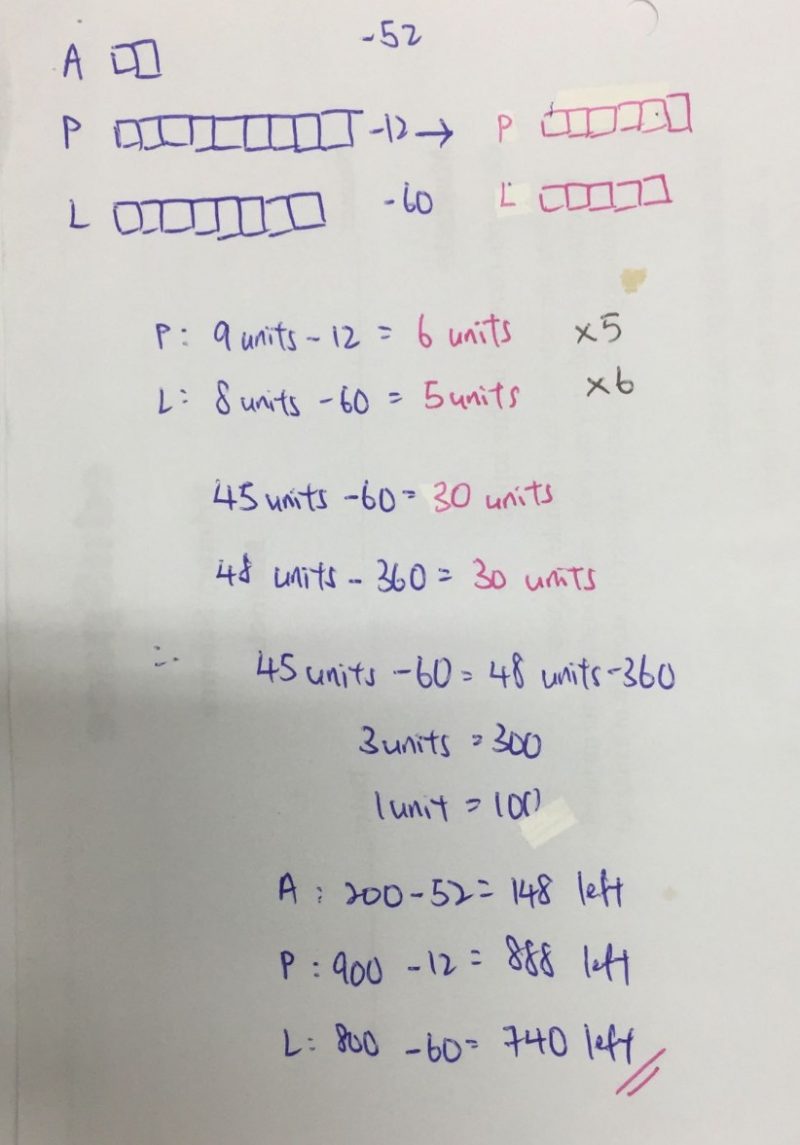 A -52
P -12 → P
L -60 L
P: 9 units - 12 = 6 units ×5
L: 8 units - 60 = 5 units ×6
45 units - 60 = 30 units
48 units - 360 = 30 units
∴ 45 units - 60 = 48 units - 360
3 units = 300
1 unit = 100
A : 200 - 52 = 148 left
P : 900 - 12 = 888 left
L : 800 - 60 = 740 left